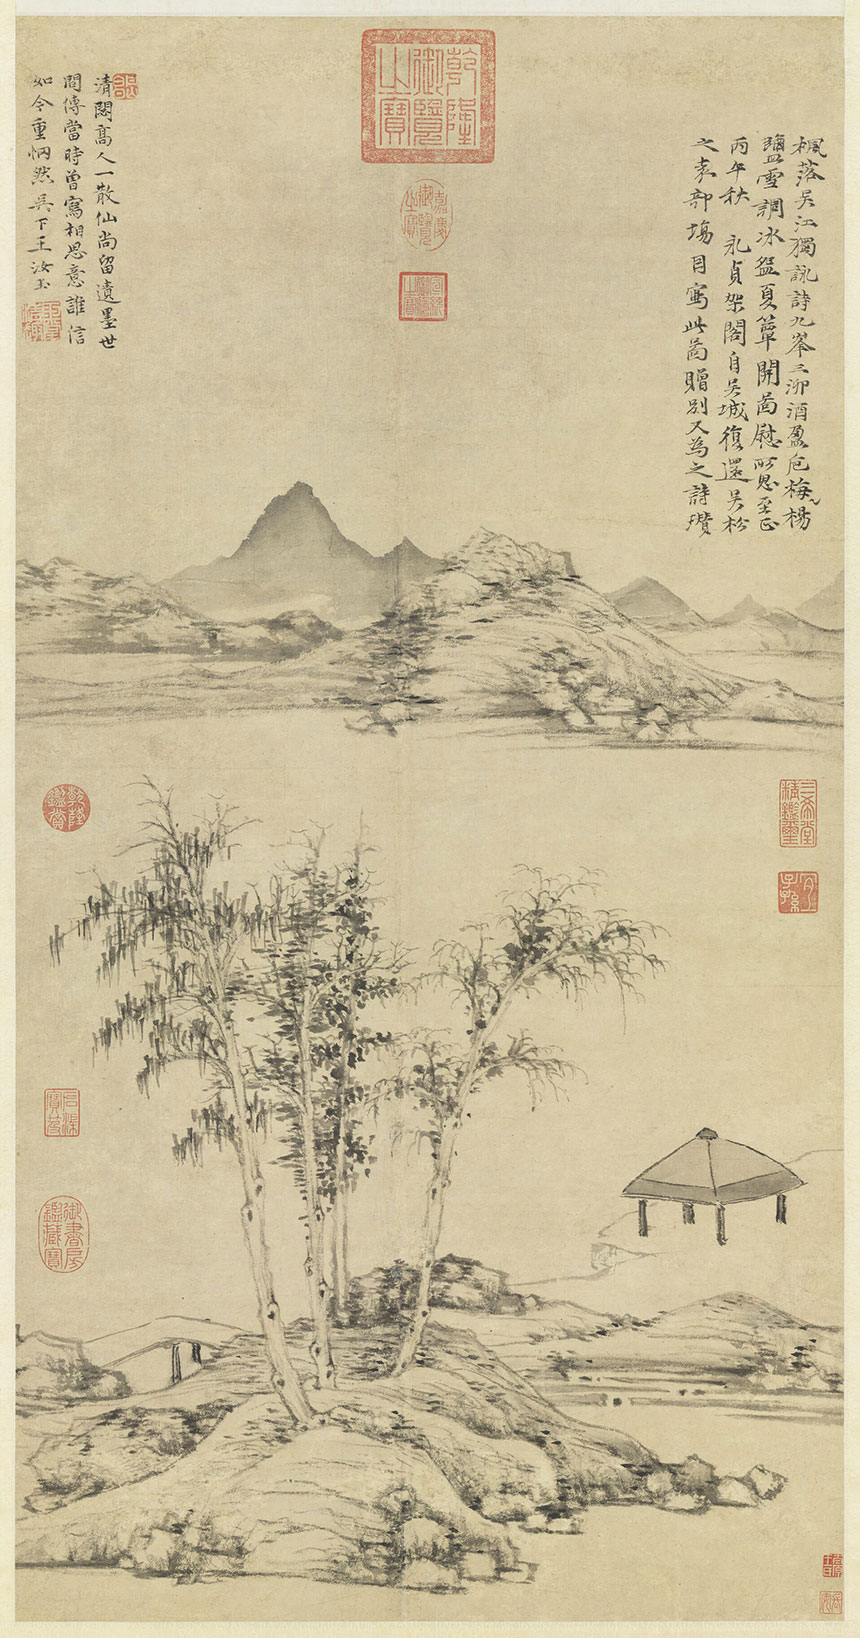 楓落吳江獨詠詩九峯三泖酒盈卮梅楊
鹽雪調冰盌夏簟開啚慰所思至正
丙午秋 永貞架閣自吳城復還吳松
之袁部場因寫此啚贈別又為之詩瓚
清閟高人一散仙尚留遺墨世
間傳當時曾寫相思意誰信
如今重惘然吳下王汝玉
乾隆御覽之寶
嘉慶御覽之寶
宣統御覽之寶
三希堂精鑑璽
宜子孫
乾隆鑑賞
石渠寶笈
御書房鑑藏寶